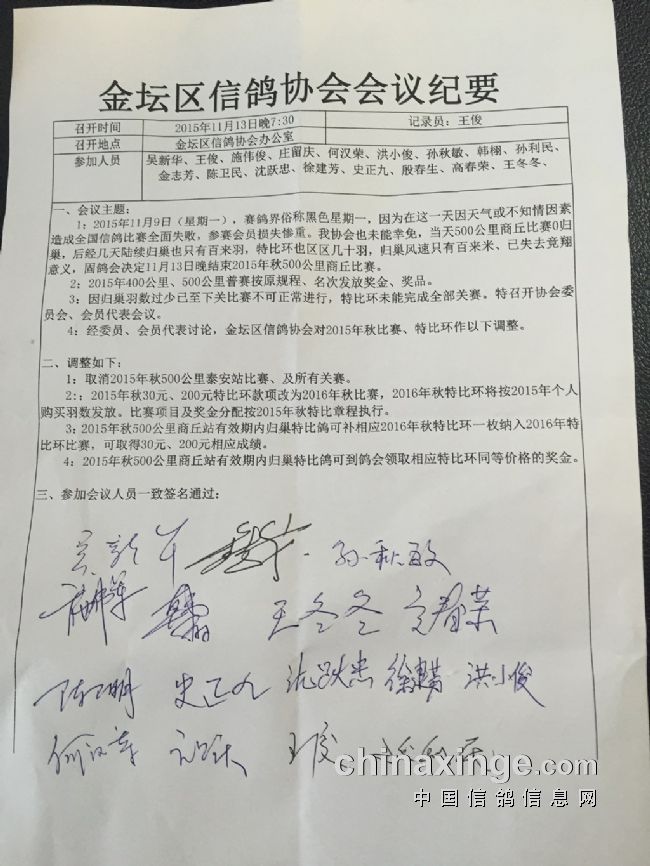 金坛区信鸽协会会议纪要
召开时间 2015年11月13日晚7:30 记录员：王俊
召开地点 金坛区信鸽协会办公室
参加人员 吴新华、王俊、施伟俊、庄留庆、何汉荣、洪小俊、孙秋敏、韩栩、孙利民、
金志芳、陈卫民、沈跃忠、徐建芳、史正九、殷春生、高春荣、王冬冬、
一、会议主题：
1：2015年11月9日（星期一），赛鸽界俗称黑色星期一，因为在这一天因天气或不知情因素
造成全国信鸽比赛全面失败，参赛会员损失惨重。我协会也未能幸免，当天500公里商丘比赛0归
巢，后经几天陆续归巢也只有百来羽，特比环也区区几十羽，归巢风速只有百来米、已失去竞翔
意义，固鸽会决定11月13日晚结束2015年秋500公里商丘比赛。
2：2015年400公里、500公里普赛按原规程、名次发放奖金、奖品。
3：因归巢羽数过少已至下关比赛不可正常进行，特比环未能完成全部关赛。特召开协会委
员会、会员代表会议。
4：经委员、会员代表讨论，金坛区信鸽协会对2015年秋比赛、特比环作以下调整。
二、调整如下：
1：取消2015年秋500公里泰安站比赛、及所有关赛。
2:：2015年秋30元、200元特比环款项改为2016年秋比赛，2016年秋特比环将按2015年个人
购买羽数发放。比赛项目及奖金分配按2015年秋特比章程执行。
3:2015年秋500公里商丘站有效期内归巢特比鸽可补相应2016年秋特比环一枚纳入2016年特
比环比赛，可取得30元、200元相应成绩。
4：2015年秋500公里商丘站有效期内归巢特比鸽可到鸽会领取相应特比环同等价格的奖金。
三、参加会议人员一致签名通过：
吴新华 孙秋敏
王冬冬 高春荣
史正九 沈跃忠 徐建芳 洪小俊
何汉荣 王俊
chinaxinge.com
中国信鸽信息网